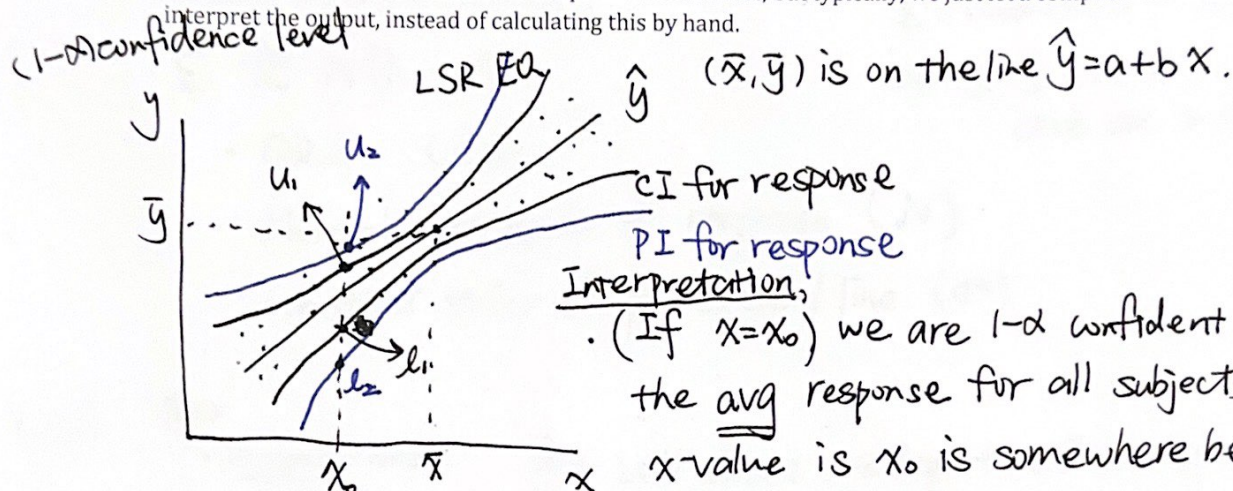 interpret the output, instead of calculating this by hand.
(1-α) confidence level
LSR EQ
ŷ
(x̄, ȳ) is on the line ŷ=a+bx.
y
u₂
u₁
ȳ
CI for response
PI for response
Interpretation;
· (If x=x₀) we are 1-α confident
l₁
l₂
the avg response for all subject
x₀
x̄
x
x-value is x₀ is somewhere be